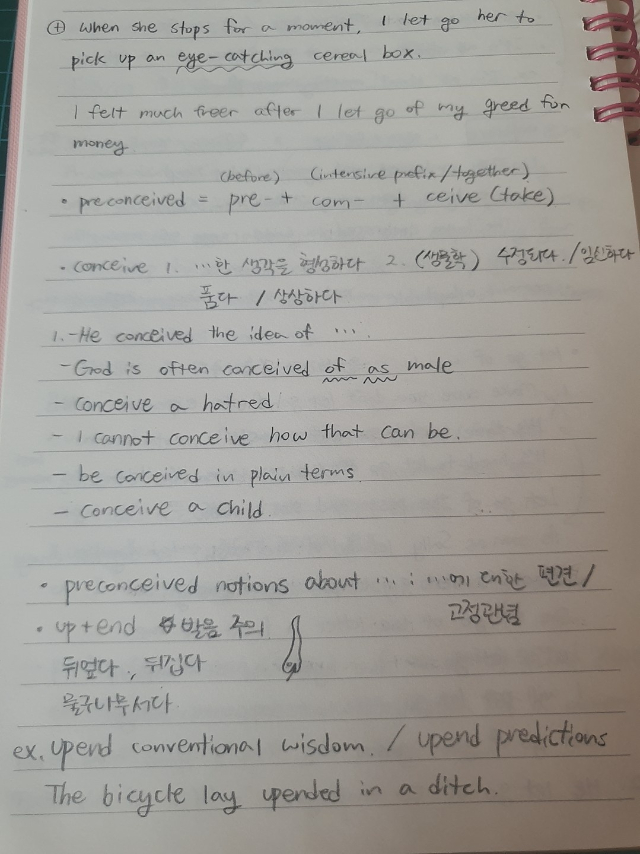 ⊕ When she stops for a moment, I let go her to
pick up an eye-catching cereal box.
I felt much freer after I let go of my greed for
money
(before) (intensive prefix/together)
• preconceived = pre- + com- + ceive (take)
• conceive 1. ...한 생각을 형성하다 2. (생물학) 수정되다. /임신하다
품다 / 상상하다
1. - He conceived the idea of ....
- God is often conceived of as male
- conceive a hatred
- I cannot conceive how that can be.
- be conceived in plain terms
- conceive a child.
• preconceived notions about ... : ...에 대한 편견 /
고정관념
• up+end 발음 주의
뒤엎다, 뒤집다
물구나무서다
ex. upend conventional wisdom. / upend predictions
The bicycle lay upended in a ditch.